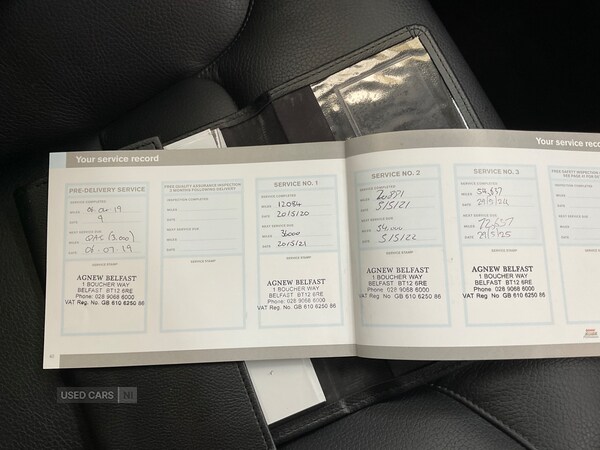 Your service record
PRE-DELIVERY SERVICE
SERVICE COMPLETED
MILES
DATE 9
NEXT SERVICE DUE
MILES
DATE 06-07-19
SERVICE STAMP
AGNEW BELFAST
1 BOUCHER WAY
BELFAST BT12 6RE
Phone: 028 9068 6000
VAT Reg. No. GB 610 6250 86
FREE QUALITY ASSURANCE INSPECTION
3 MONTHS FOLLOWING DELIVERY
INSPECTION COMPLETED
MILES
DATE
NEXT SERVICE DUE
MILES
DATE
SERVICE STAMP
SERVICE NO. 1
SERVICE COMPLETED
MILES 12084
DATE 20/5/20
NEXT SERVICE DUE
MILES 36000
DATE 20/5/21
SERVICE STAMP
AGNEW BELFAST
1 BOUCHER WAY
BELFAST BT12 6RE
Phone: 028 9068 6000
VAT Reg. No. GB 610 6250 86
SERVICE NO. 2
SERVICE COMPLETED
MILES
DATE 5/5/21
NEXT SERVICE DUE
MILES
DATE 5/5/22
SERVICE STAMP
AGNEW BELFAST
1 BOUCHER WAY
BELFAST BT12 6RE
Phone: 028 9068 6000
VAT Reg. No. GB 610 6250 86
Your service reco
SERVICE NO. 3
SERVICE COMPLETED
MILES
DATE
NEXT SERVICE DUE
MILES
DATE
SERVICE STAMP
AGNEW BELFAST
1 BOUCHER WAY
BELFAST BT12 6RE
Phone: 028 9068 6000
VAT Reg. No. GB 610 6250 86
INSPECTION COMPLETED
MILES
DATE
NEXT SERVICE DUE
MILES
DATE
USED CARS NI